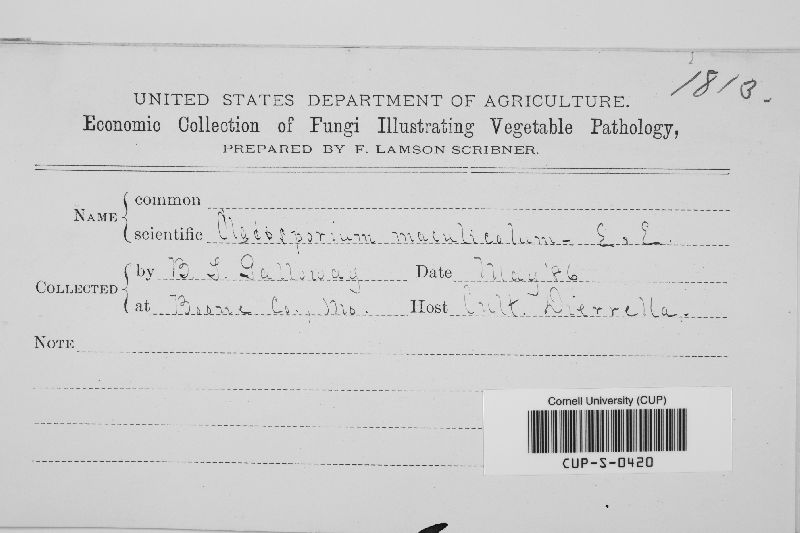 1813.
UNITED STATES DEPARTMENT OF AGRICULTURE.
Economic Collection of Fungi Illustrating Vegetable Pathology,
PREPARED BY F. LAMSON SCRIBNER.
NAME common
scientific maculicolum - E. & E.
COLLECTED by B. T. Galloway Date May '86
at Boone Co., Mo. Host Cult. Diervilla.
NOTE
Cornell University (CUP)
CUP-S-0420